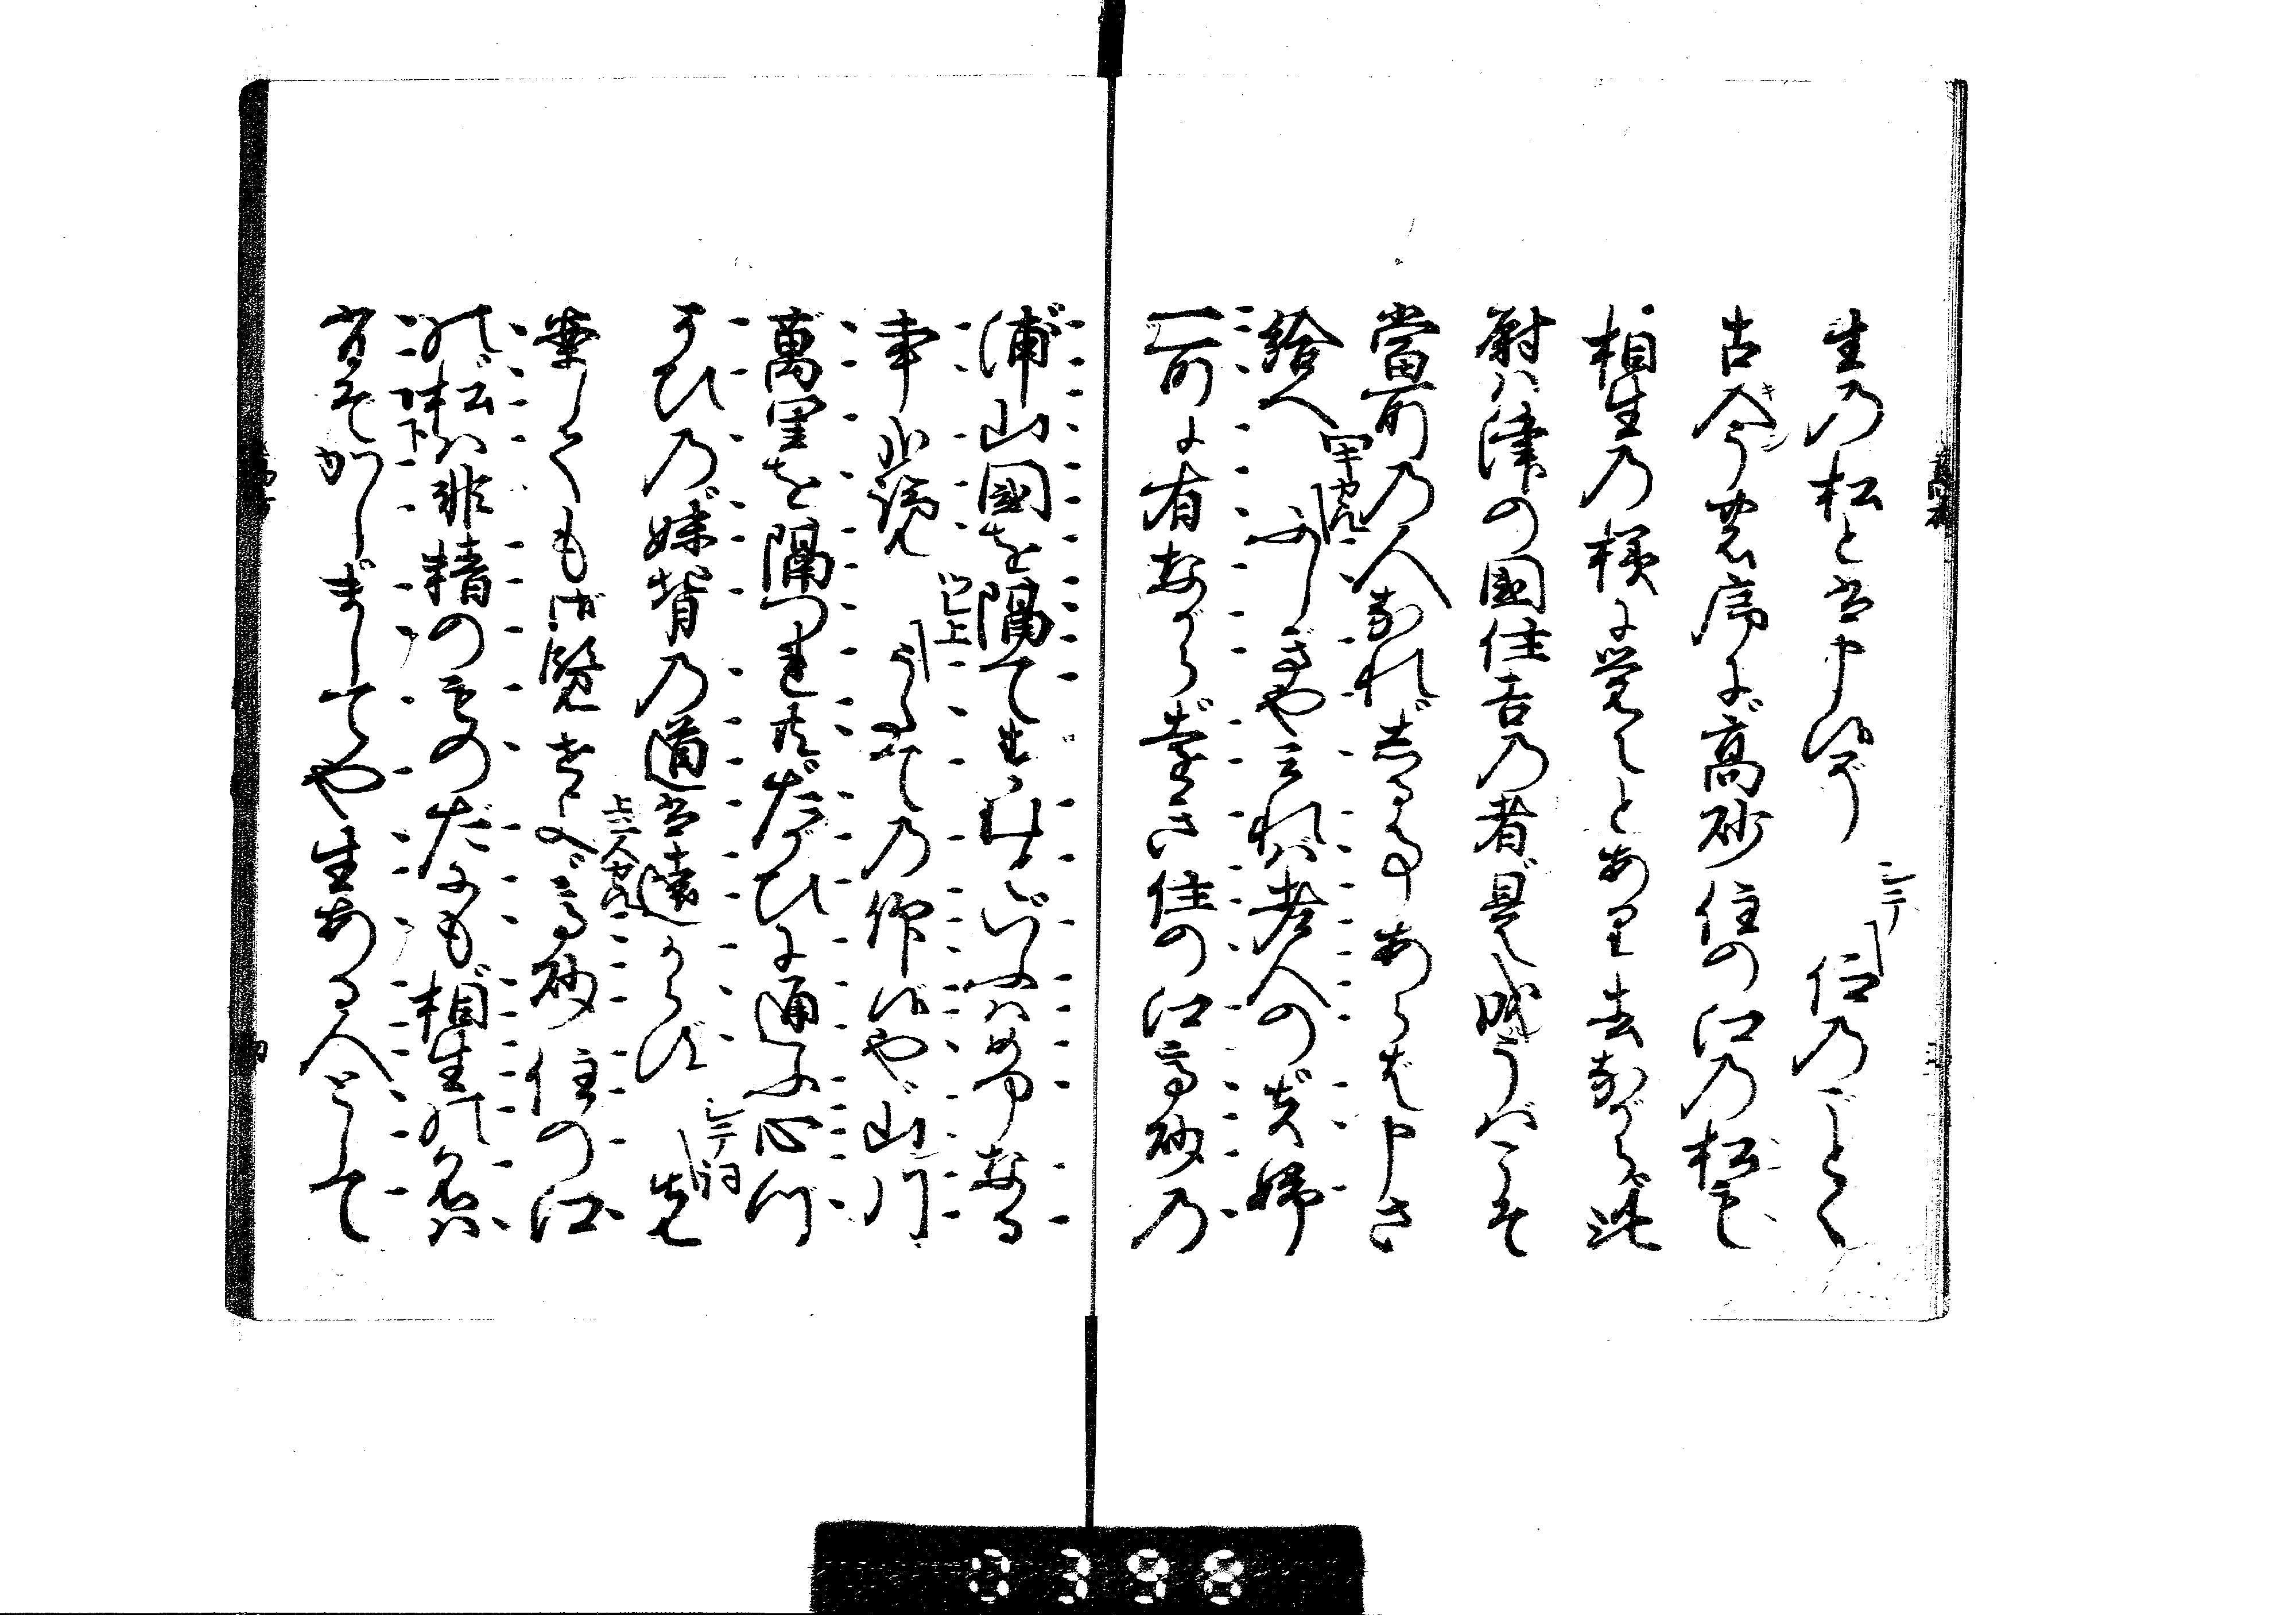 生乃松とは申候ぞ シテ 仰乃ごとく
古今の序に高砂住の江乃松も
相生乃様に覚えとあり去ながら此
尉は津の国住吉乃者是成うばこそ
當所乃人なれ志る事あらば申さ
給へ ワキカヽル ふしぎや見れば老人の夫婦
一所に有ながら遠き住の江高砂乃
浦山國を隔て住といふはいかなる
事やらん ツレ上 うたての仰候や山川
萬里を隔つれ共たがひに通ふ心づ
かひ乃妹背乃道は遠からず シテ詞 先
案じても御覧ぜよ 上二人カヽル 高砂住の江
の松は非情の物だにも相生の名は
有ぞかしましてや生ある人として